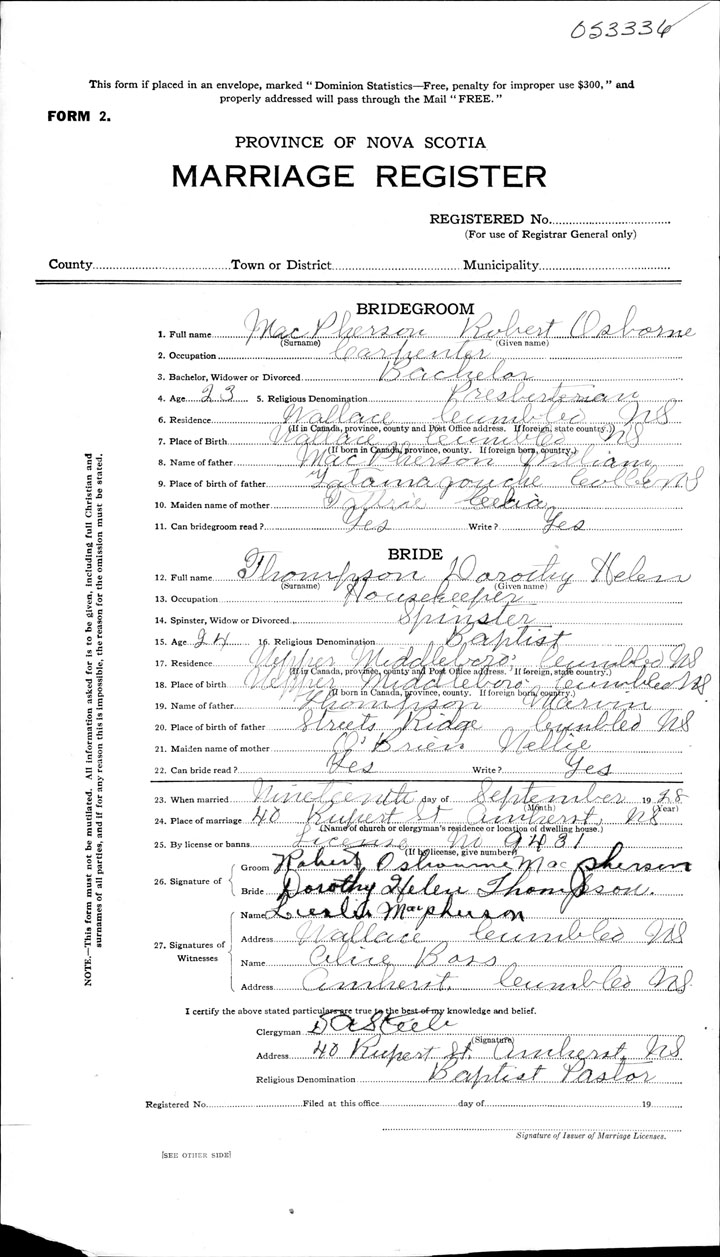 053336
This form if placed in an envelope, marked "Dominion Statistics—Free, penalty for improper use $300," and
properly addressed will pass through the Mail "FREE."
FORM 2.
PROVINCE OF NOVA SCOTIA
MARRIAGE REGISTER
REGISTERED No.
(For use of Registrar General only)
County Town or District Municipality
NOTE.—This form must not be mutilated. All information asked for is to be given, including full Christian and
surnames of all parties, and if for any reason this is impossible, the reason for the omission must be stated.
BRIDEGROOM
1. Full name MacPherson Robert Osborne
(Surname) (Given name)
2. Occupation Carpenter
3. Bachelor, Widower or Divorced Bachelor
4. Age 23 5. Religious Denomination Presbterian
6. Residence Wallace Cumbled NS
(If in Canada, province, county and Post Office address. If foreign, state country.)
7. Place of Birth Wallace Cumbled NS
(If born in Canada, province, county. If foreign born, country.)
8. Name of father MacPherson William
9. Place of birth of father Tatamagouche NS
10. Maiden name of mother Celia
11. Can bridegroom read? Yes Write? Yes
BRIDE
12. Full name Thompson Dorothy Helen
(Surname) (Given name)
13. Occupation Housekeeper
14. Spinster, Widow or Divorced Spinster
15. Age 24 16. Religious Denomination Baptist
17. Residence Upper Middleboro Cumbled NS
(If in Canada, province, county and Post Office address. If foreign, state country.)
18. Place of birth Upper Middleboro Cumbled NS
(If born in Canada, province, county. If foreign born, country.)
19. Name of father Thompson
20. Place of birth of father Streets Ridge Cumbled NS
21. Maiden name of mother O'Brien Nellie
22. Can bride read? Yes Write? Yes
23. When married Nineteenth day of September 1928
(Month) (Year)
24. Place of marriage 40 Rupert St Amherst, NS
(Name of church or clergyman's residence or location of dwelling house.)
25. By license or banns License No 9431
(If by license, give number)
26. Signature of
Groom Robert Osbourne MacPherson
Bride Dorothy Helen Thompson.
27. Signatures of Witnesses
Name Leslie MacPherson
Address Wallace Cumbled NS
Name Alice
Address Amherst. Cumbled NS
I certify the above stated particulars are true to the best of my knowledge and belief.
Clergyman Steele
(Signature)
Address 40 Rupert St. Amherst, NS
Religious Denomination Baptist Pastor
Registered No. Filed at this office day of 19
Signature of Issuer of Marriage Licenses.
[SEE OTHER SIDE]